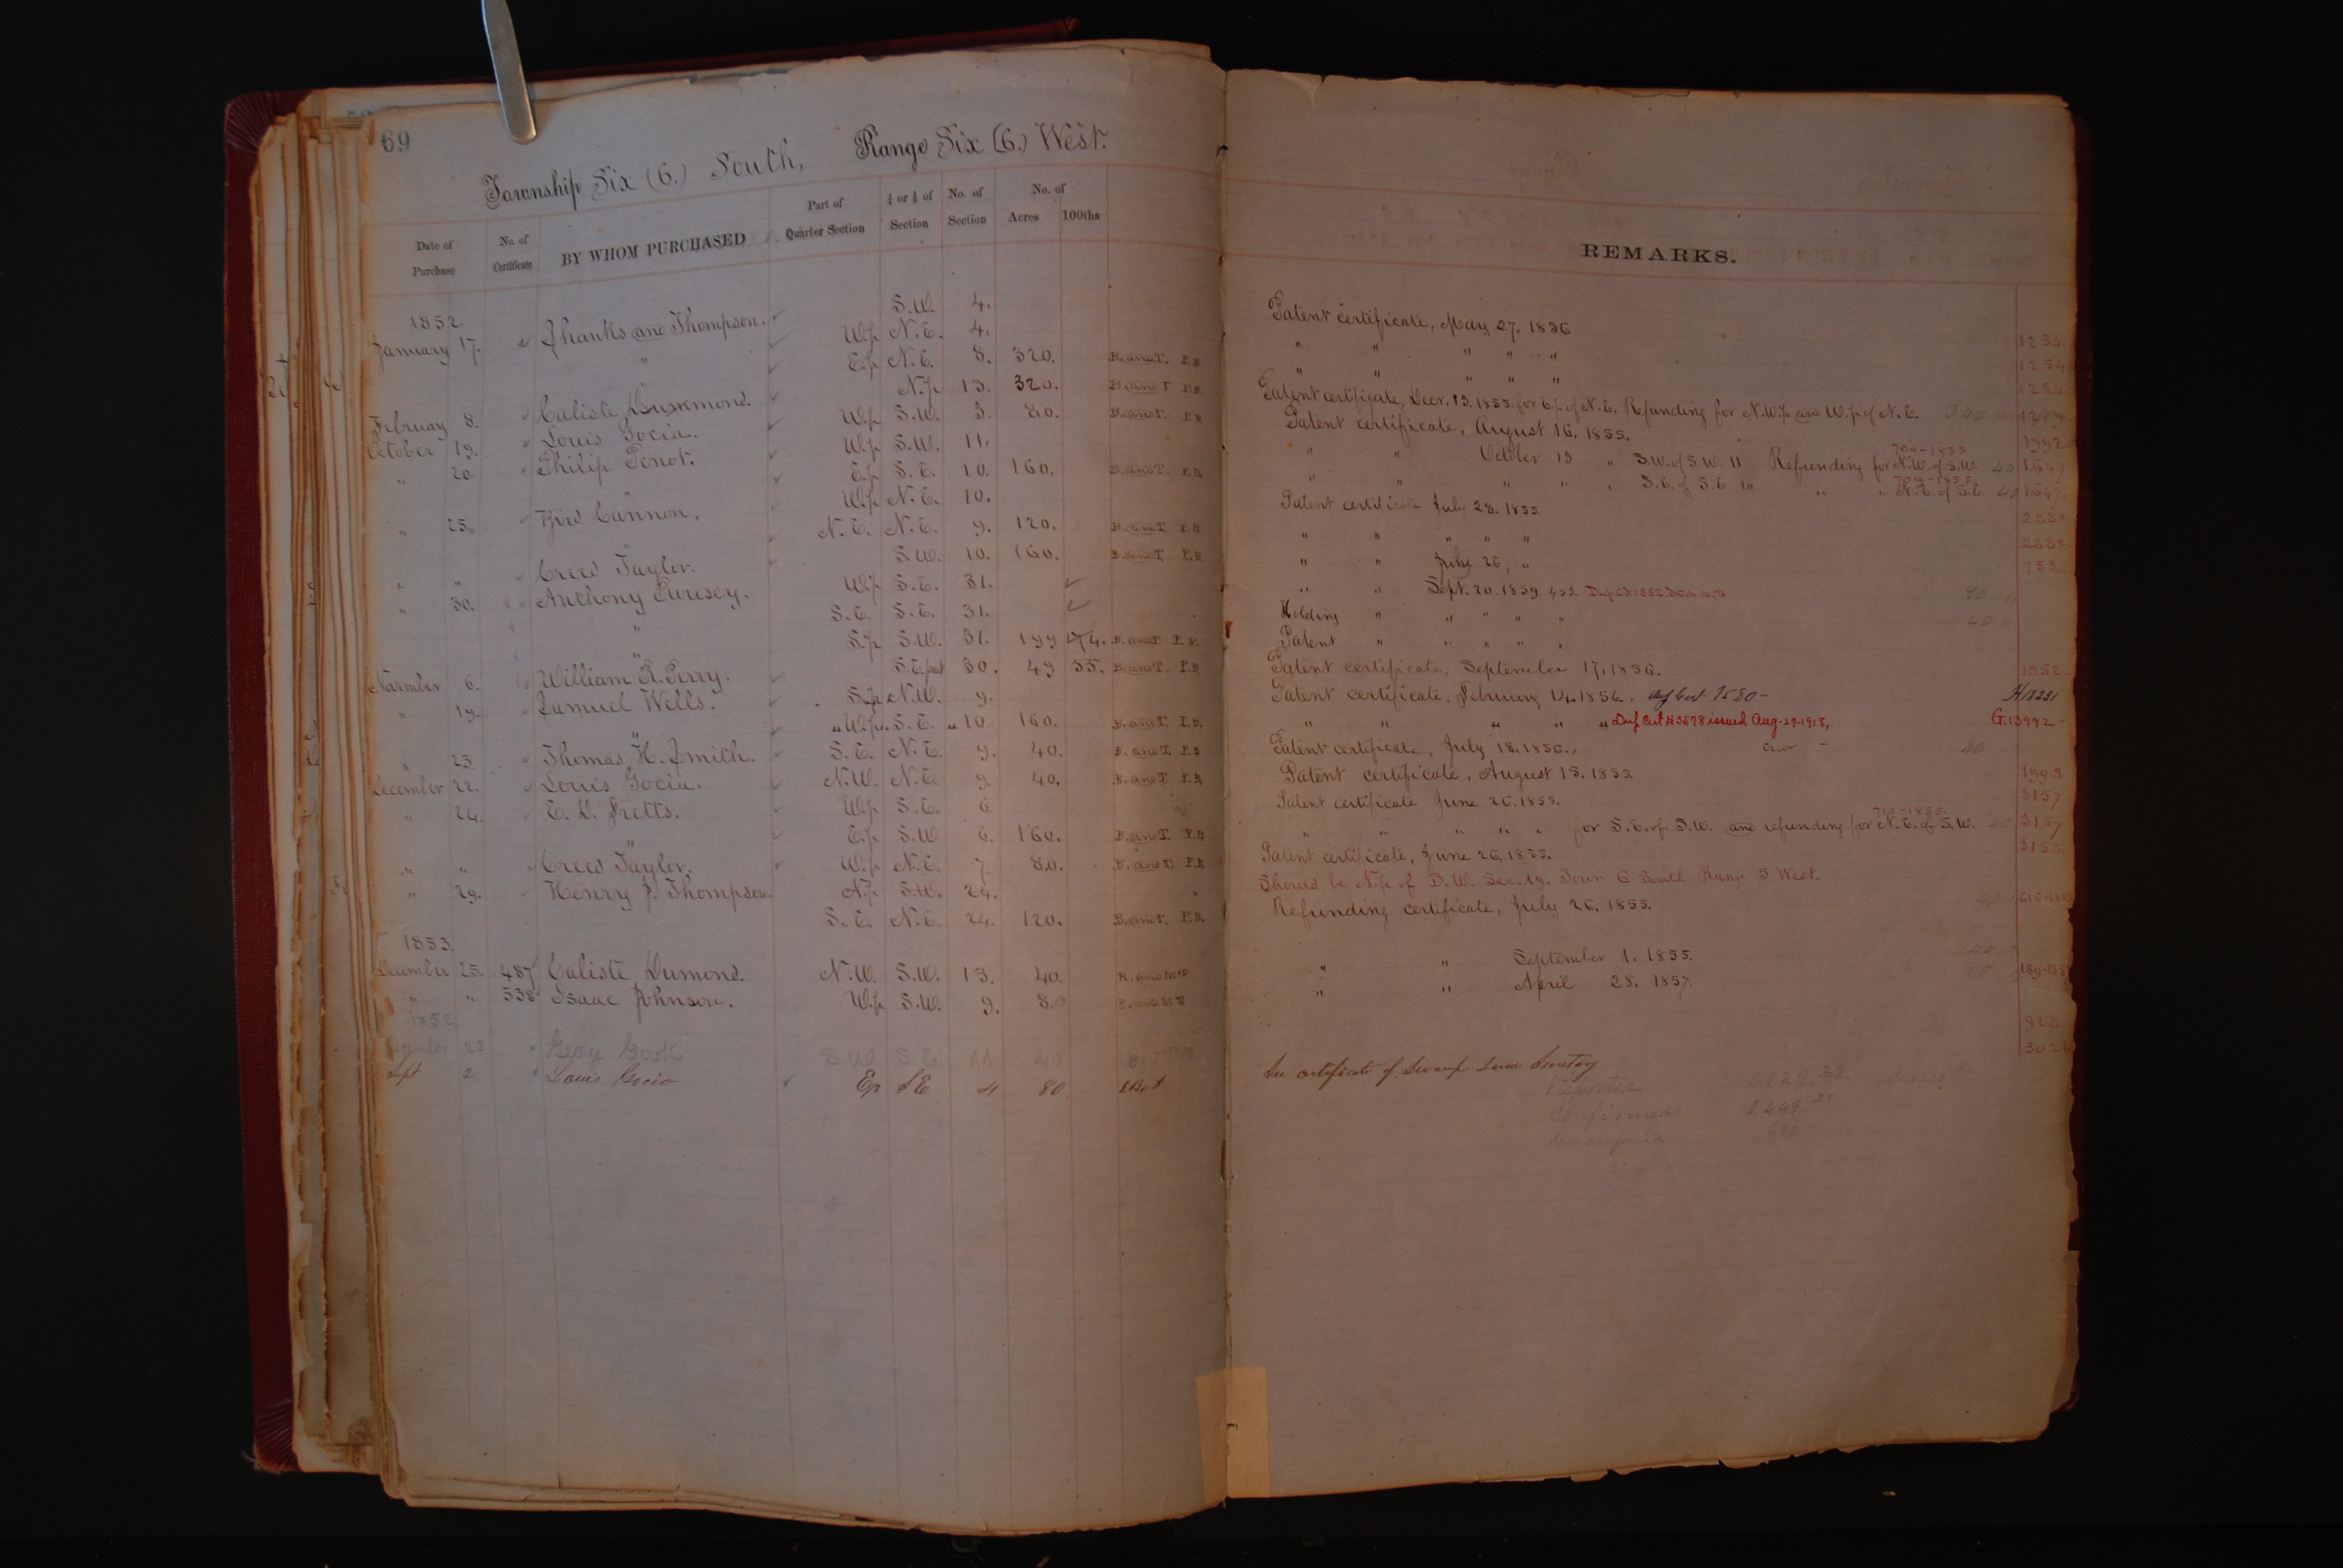 69
Township Six (6.) South, Range Six (6.) West.
Date of Purchase No. of Certificate BY WHOM PURCHASED Part of Quarter Section ½ or ¼ of Section No. of Section No. of Acres 100ths
1852.
January 17. Shanks and Thompson. S.W. 4.
" W.½ N.E. 4.
" E.½ N.E. 8. 320. B. and T. P.B.
February 8. Caliste N.½ 13. 320. B. and T. P.B.
October 19. Louis Gocia. W.½ S.W. 3. 80. B. and T. P.B.
" 20. Philip Penot. W.½ S.W. 11.
" E.½ S.E. 10. 160. B. and T. P.B.
" 25. Bird Cannon. W.½ N.E. 10.
" N.E. N.E. 9. 120. B. and T. P.B.
" " Creed Taylor. S.W. 10. 160. B. and T. P.B.
" 30. Anthony Rousey. W.½ S.E. 31.
" S.E. S.E. 31.
" S.½ S.W. 31. 199 74. B. and T. P.B.
November 6. William R. Perry. S.E. 30. 49 55. B. and T. P.B.
" 19. Samuel Wells. S.½ N.W. 9.
" W.½ S.E. 10 160. B. and T. P.B.
" 23. Thomas H. Smith. S.E. N.E. 9. 40. B. and T. P.B.
December 22. Louis Gocia. N.W. N.E. 9. 40. B. and T. P.B.
" 24. E. D. Fretts. W.½ S.E. 6.
" E.½ S.W. 6. 160. B. and T. P.B.
" " Creed Taylor. W.½ N.E. 7. 80. B. and T. P.B.
" 29. Henry P. Thompson. N.½ S.W. 24.
S.E. N.E. 24. 120. B. and T. P.B.
1853.
December 25. 487 Caliste Dumond. N.W. S.W. 13. 40.
" " 538 Isaac Johnson. W.½ S.W. 9. 80
1852
December 23 George Cook S.W. S.E. 11 40
Sept 2 Louis Gocio E½ SE 4 80
REMARKS.
Patent certificate, May 27, 1836
" " " " " 1254
" " " " " 1254
1254
Patent certificate, Decr. 13, 1855 for E.½ of N.E. Refunding for N.W.¼ and W.½ of N.E. 240
Patent certificate, August 16, 1855. 1992
" " October 13 " S.W. of S.W. 11 Refunding for N.W. of S.W. 40 1547
" " " " " S.E. of S.E. 10 " " N.E. of S.E. 40 1547
Patent certificate July 28. 1855 2882
" " " " " 2882
" " July 26, " 753.
" " Sept. 20. 1859. 80 "
Holding " " " " " 40 "
Patent " " " " "
Patent certificate, September 17, 1856. 1552
Patent certificate, February 14, 1856. Dup Cert 7580 - H 18231
" " " " " Dup Cert #3878 issued Aug-27-1918, G.13992 -
Patent certificate, July 18. 1856., 40
Patent certificate, August 15. 1855. 1993
Patent certificate June 26. 1855. 3157
" " " " " for S.E. of S.W. and refunding for N.E. of S.W. 710-1855. 40 3157
Patent certificate, June 26, 1855. 3153.
Should be N.½ of S.W. Sec. 19. Town 6 South Range 5 West.
Refunding certificate, July 26, 1855.
" " September 1. 1855. 40
" " April 28, 1857. 80
See certificate of Swamp Land Secretary
Reported
Confirmed